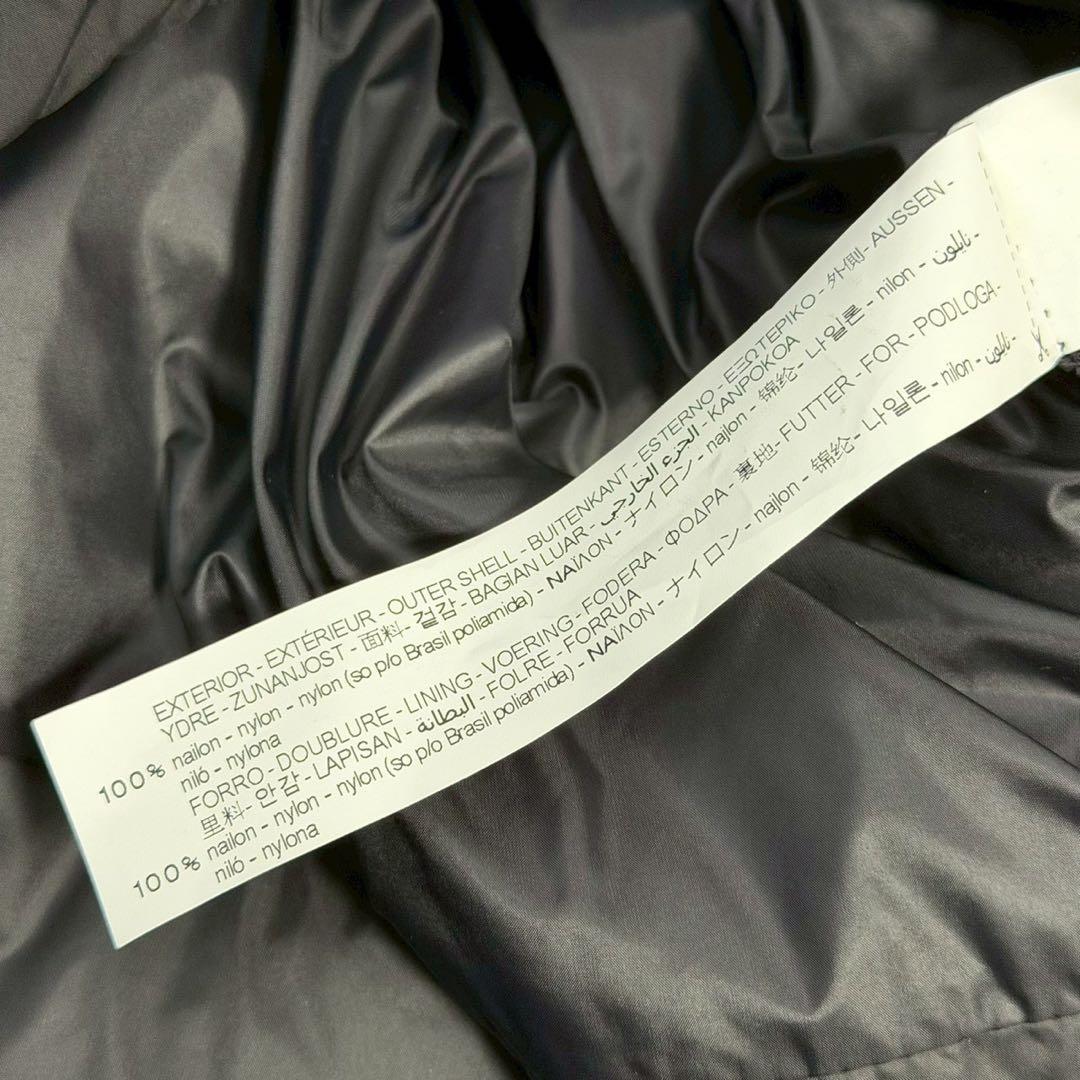 EXTERIOR - EXTÉRIEUR - OUTER SHELL - BUITENKANT - ESTERNO - ΕΞΩΤΕΡΙΚΟ - 外側 - AUSSEN -
YDRE - ZUNANJOST - 面料 - 겉감 - BAGIAN LUAR - الجزء الخارجي - KANPOKOA
100% nailon - nylon - nylon (so p/o Brasil poliamida) - ΝΑΪΛΟΝ - ナイロン - najlon - 锦纶 - 나일론 - nilon - نايلون -
niló - nylona
FORRO - DOUBLURE - LINING - VOERING - FODERA - ΦΟΔΡΑ - 裏地 - FUTTER - FOR - PODLOGA -
里料 - 안감 - LAPISAN - البطانة - FOLRE - FORRUA
100% nailon - nylon - nylon (so p/o Brasil poliamida) - ΝΑΪΛΟΝ - ナイロン - najlon - 锦纶 - 나일론 - nilon - نايلون -
niló - nylona